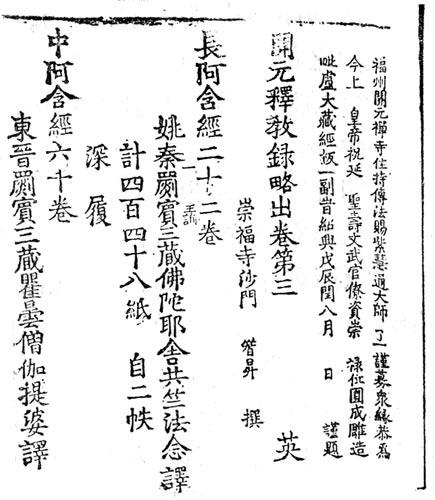 福州開元禪寺住持傳法賜紫慧通大師了一謹募衆緣恭爲
今上皇帝祝延聖壽文武官僚資崇禄位圓成雕造
毗盧大藏經板一副昔紹興戊辰閏八月日謹題
開元釋教録略出卷第三 英
崇福寺沙門智昇撰
長阿含經二十二卷
姚秦罽賓三藏佛陀耶舍共竺法念譯
計四百四十八紙 自二帙
深履
中阿含經六十卷
東晉罽賓三藏瞿曇僧伽提婆譯